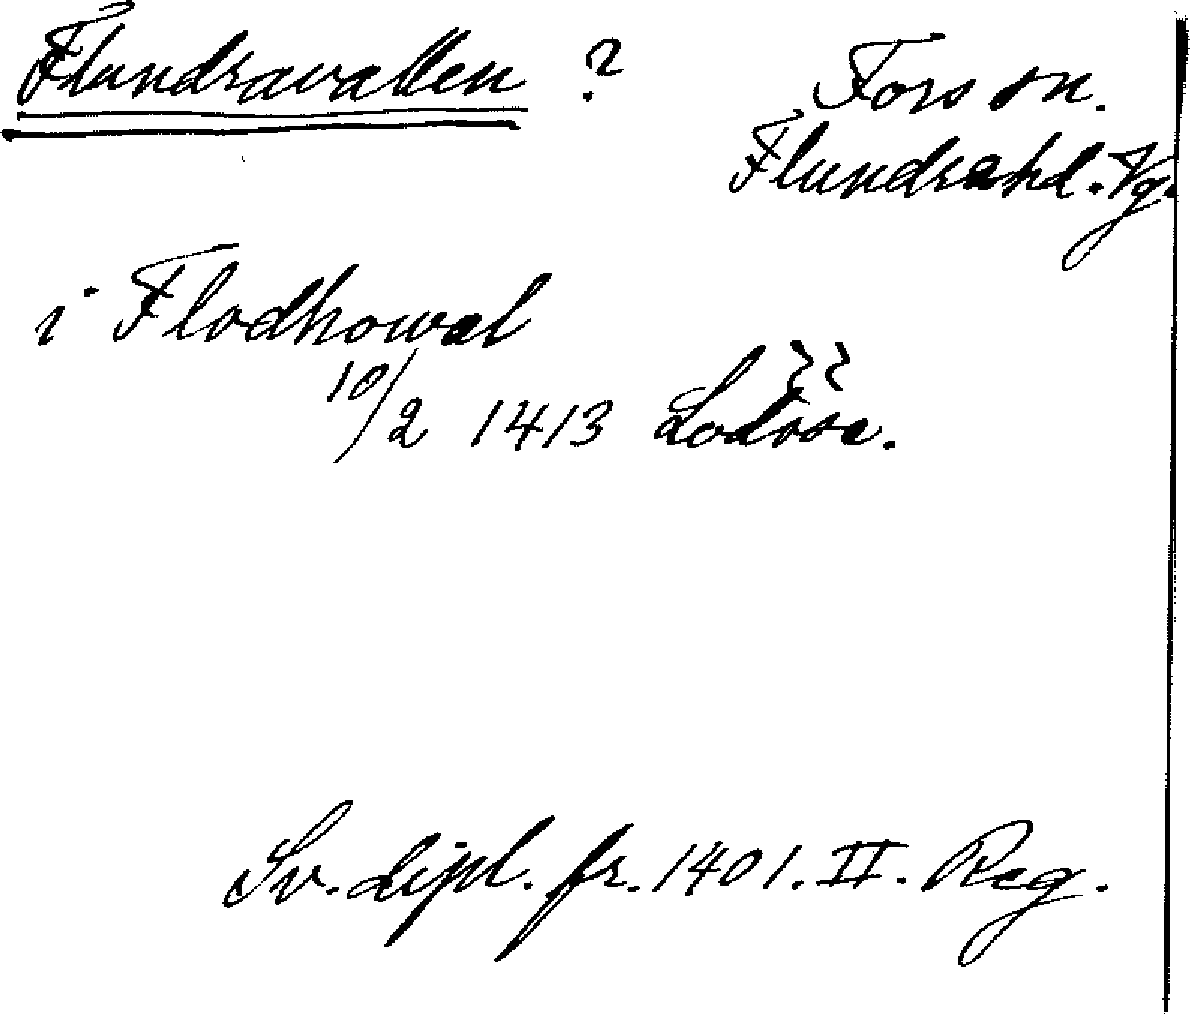 Flundravallen ? Fors sn.
Flundrehd. Vg.
i Flodhowal
10/2 1413 Lödöse.
Sv. dipl. fr. 1401. II. Reg.